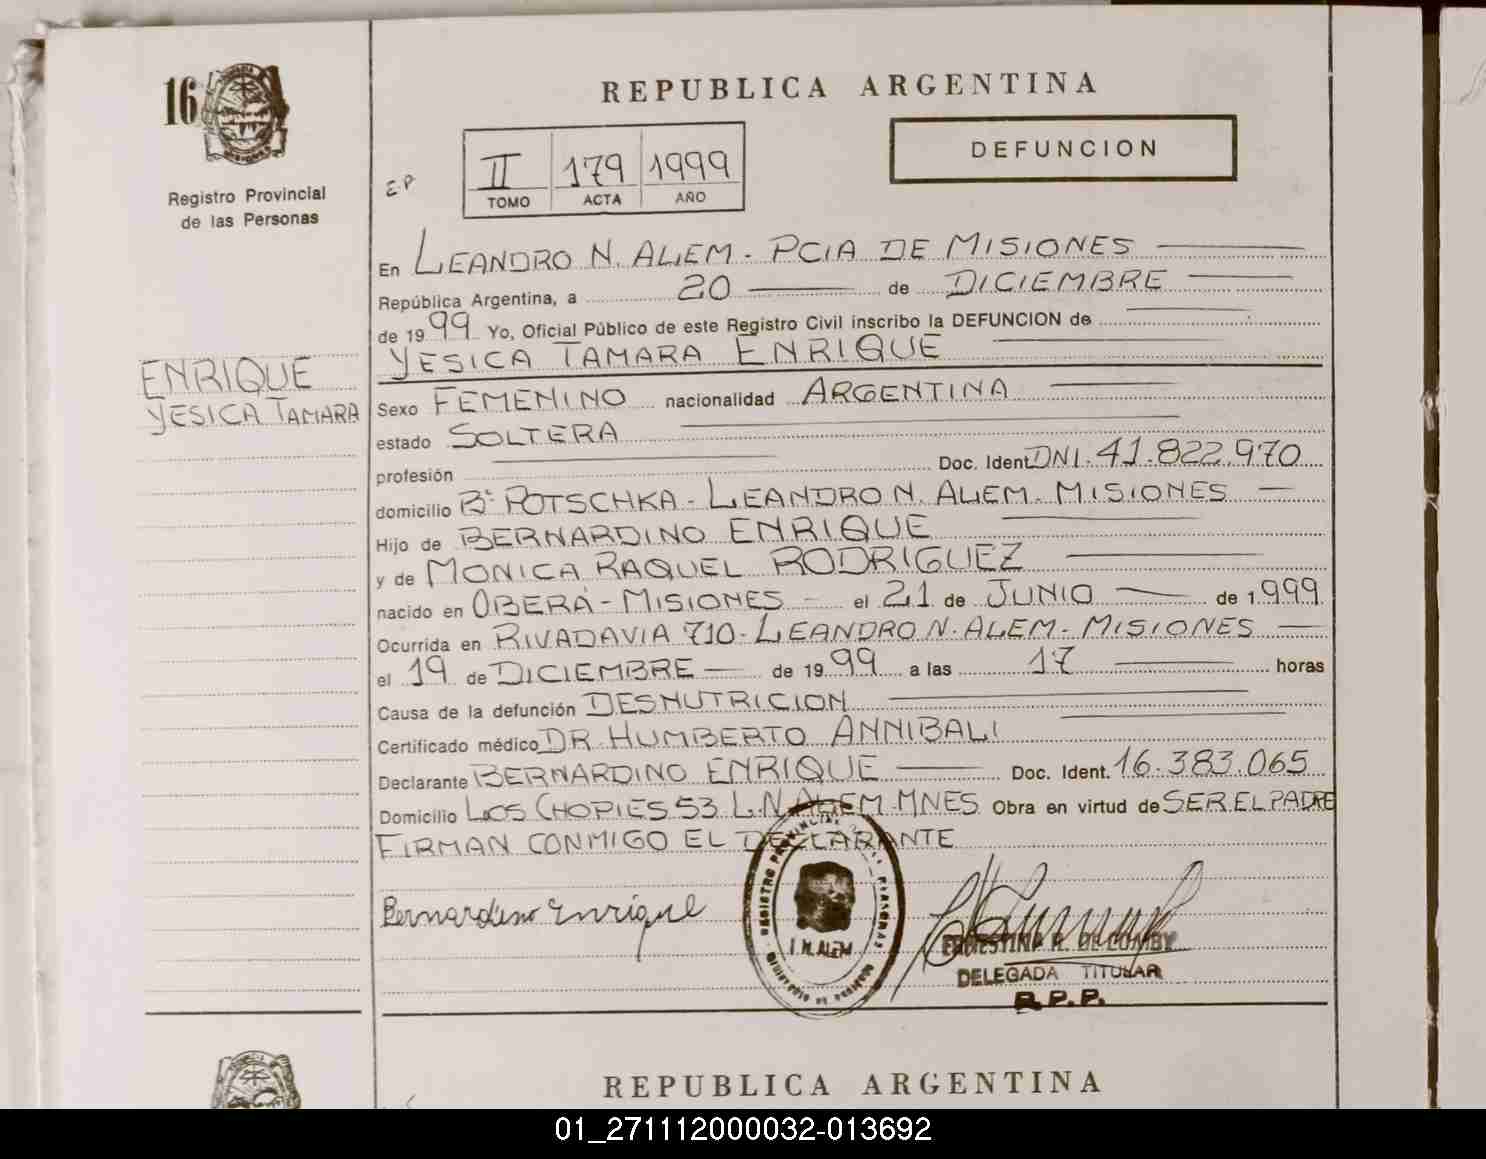 16
Registro Provincial
de las Personas
REPUBLICA ARGENTINA
DEFUNCION
EP
II 179 1999
TOMO ACTA AÑO
En LEANDRO N. ALEM - PCIA DE MISIONES
República Argentina, a 20 de DICIEMBRE
de 1999 Yo, Oficial Público de este Registro Civil inscribo la DEFUNCION de
YESICA TAMARA ENRIQUE
ENRIQUE
YESICA TAMARA
Sexo FEMENINO nacionalidad ARGENTINA
estado SOLTERA
profesión Doc. Ident. DNI. 41.822.970
domicilio Bº POTSCHKA - LEANDRO N. ALEM. MISIONES
Hijo de BERNARDINO ENRIQUE
y de MONICA RAQUEL RODRIGUEZ
nacido en OBERÁ - MISIONES - el 21 de JUNIO de 1.999
Ocurrida en RIVADAVIA 710 - LEANDRO N. ALEM - MISIONES
el 19 de DICIEMBRE de 1999 a las 17 horas
Causa de la defunción DESNUTRICION
Certificado médico DR. HUMBERTO ANNIBALI
Declarante BERNARDINO ENRIQUE Doc. Ident. 16.383.065
Domicilio LOS CHOPIES 53 L.N. ALEM. MNES Obra en virtud de SER EL PADRE
FIRMAN CONMIGO EL DECLARANTE
Bernardino Enrique
REGISTRO PROVINCIAL PERSONAS
L.N. ALEM
ERNESTINA R. DE COMBY
DELEGADA TITULAR
R.P.P.
REPUBLICA ARGENTINA
01_271112000032-013692